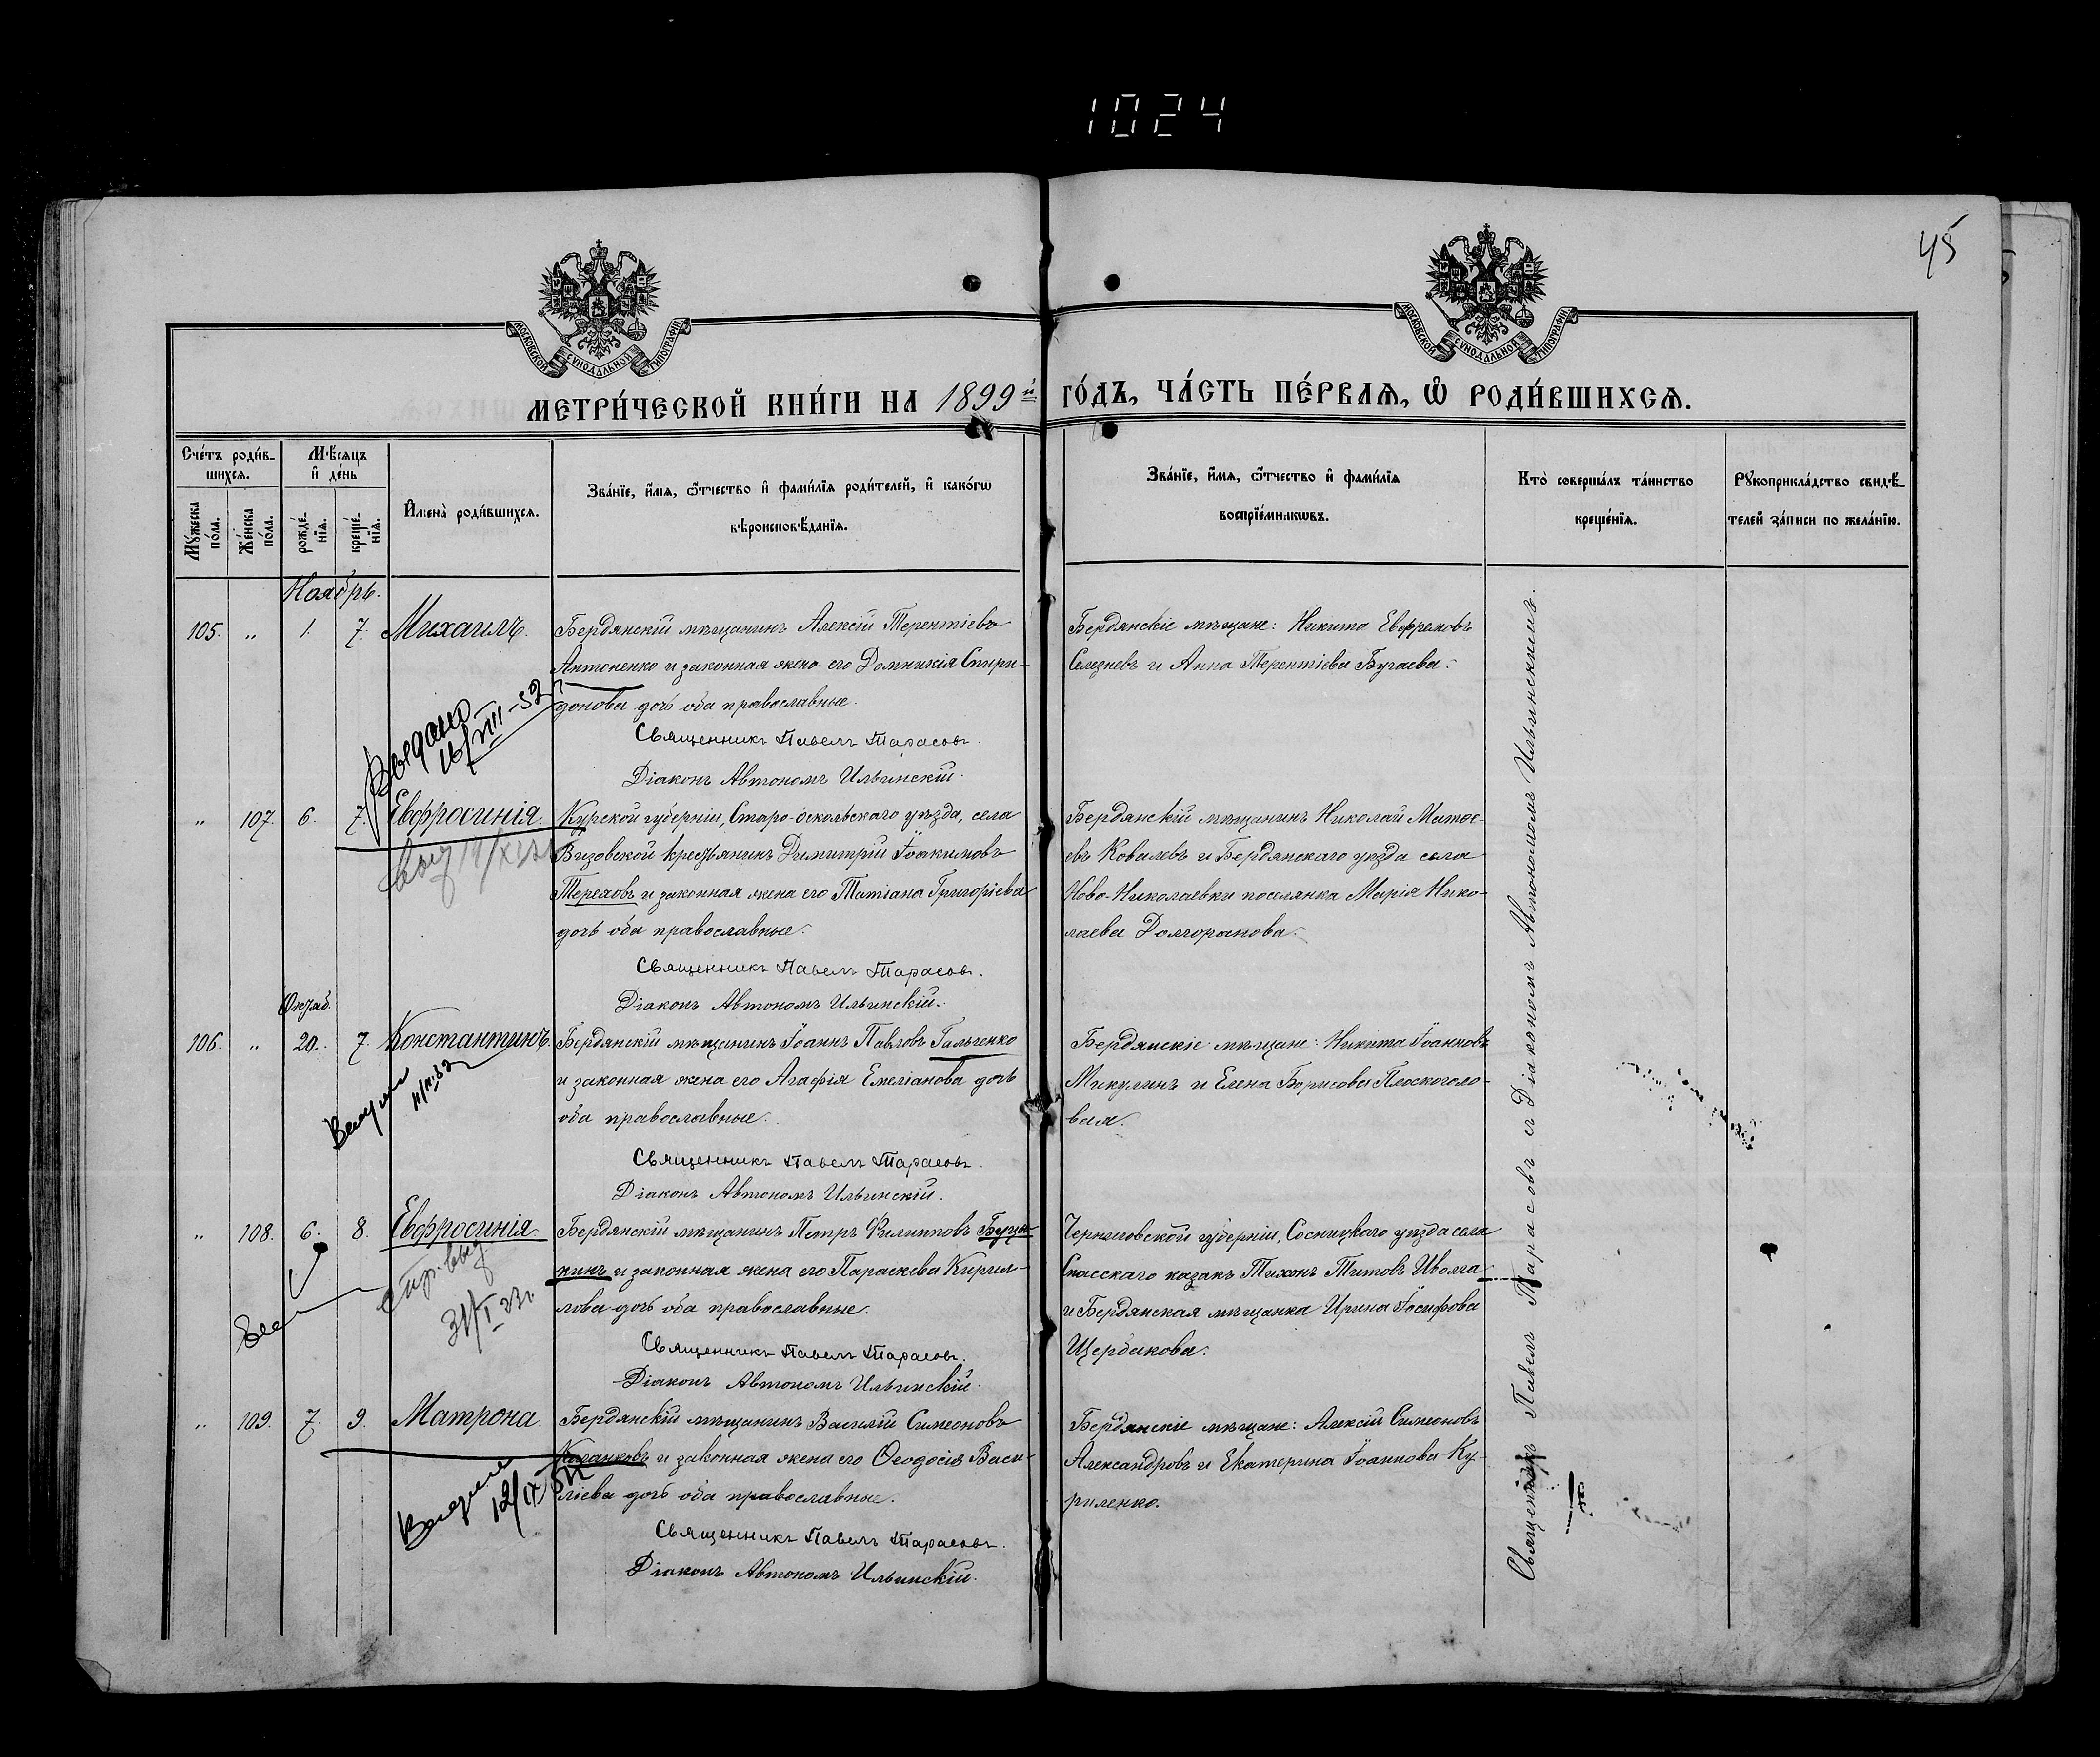 1024
45
МОСКОВСКОЙ СѴНОДАЛЬНОЙ ТИПОГРАФІИ
МОСКОВСКОЙ СѴНОДАЛЬНОЙ ТИПОГРАФІИ
МЕТРИ́ЧЕСКОЙ КНИ́ГИ НА 1899й ГО́ДЪ, ЧА́СТЬ ПЕ́РВАѦ, Ѿ РОДИ́ВШИХСѦ.
Сче́тъ роди́в-
шихсѧ.
Мꙋ́жеска по́ла.
Же́нска по́ла.
Мѣ́сѧцъ
и҆ де́нь
рожде́-
нїѧ.
креще́-
нїѧ.
И҆мена̀ роди́вшихсѧ.
Зва́нїе, и҆́мѧ, ѻ҆́тчество и҆ фами́лїѧ роди́телей, и҆ како́гѡ
вѣроисповѣ́данїѧ.
Зва́нїе, и҆́мѧ, ѻ҆́тчество и҆ фами́лїѧ
воспрїе́мникѡвъ.
Кто̀ соверша́лъ та́инство
креще́нїѧ.
Рꙋкоприкла́дство свидѣ́-
телей за́писи по жела́нїю.
Ноябрь.
105. „ 1. 7. Михаилъ.
Бердянскій мѣщанинъ Алексій Терентіевъ
Антоненко и законная жена его Домникія Спири-
донова дочь оба православные.
Священникъ Павелъ Тарасовъ.
Діаконъ Автономъ Ильинскій.
Бердянскіе мѣщане: Никита Евфремовъ
Селезневъ и Анна Терентіева Бугаева.
Выдано
16/VIII-52 г
„ 107. 6. 7. Евфросинія.
Курской губерніи, Старо-оскольскаго уѣзда, села
Вязовской крестьянинъ Димитрій Іоакимовъ
Тереховъ и законная жена его Татіана Григоріева
дочь оба православные.
Священникъ Павелъ Тарасовъ.
Діаконъ Автономъ Ильинскій.
Бердянскій мѣщанинъ Николай Матѳе-
евъ Ковалевъ и Бердянскаго уѣзда села
Ново-Николаевки поселянка Марія Нико-
лаева Долгоранова.
Октяб.
106. „ 20. 7. Константинъ.
Бердянскій мѣщанинъ Іоаннъ Павловъ Гальченко
и законная жена его Агафія Емеліанова дочь
оба православные.
Священникъ Павелъ Тарасовъ.
Діаконъ Автономъ Ильинскій.
Бердянскіе мѣщане: Никита Іоанновъ
Микулинъ и Елена Борисова Плоскоголо-
вая.
„ 108. 6. 8. Евфросинія.
Бердянскій мѣщанинъ Петръ Филипповъ
и законная жена его Параскева Кирил-
лова дочь оба православные.
Священникъ Павелъ Тарасовъ.
Діаконъ Автономъ Ильинскій.
Черниговской губерніи, Сосницкаго уѣзда села
Спасскаго казакъ Тихонъ Титовъ Иволга
и Бердянская мѣщанка Ирина Іосифова
Щербакова.
31/I 23г.
„ 109. 7. 9. Матрона.
Бердянскій мѣщанинъ Василій Симеоновъ
и законная жена его Ѳеодосія Васи-
ліева дочь оба православные.
Священникъ Павелъ Тарасовъ.
Діаконъ Автономъ Ильинскій.
Бердянскіе мѣщане: Алексій Симеоновъ
Александровъ и Екатерина Іоаннова Ку-
риленко.
Священникъ Павелъ Тарасовъ съ Діакономъ Автономомъ Ильинскимъ.